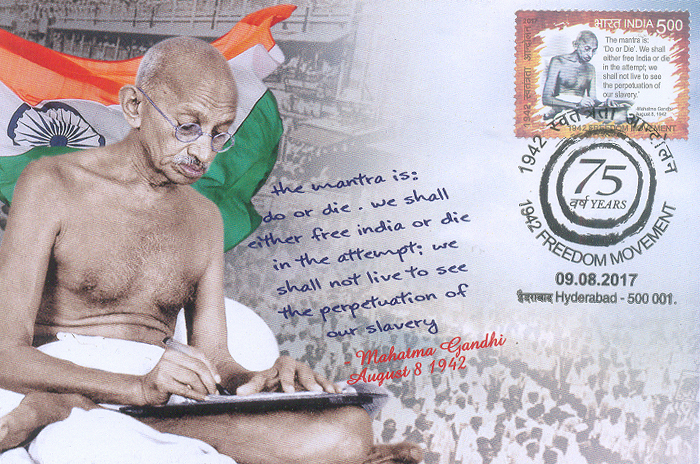 the mantra is:
do or die. we shall
either free india or die
in the attempt; we
shall not live to see
the perpetuation of
our slavery
- Mahatma Gandhi
August 8 1942
2017
भारत INDIA 500
The mantra is:
'Do or Die'. We shall
either free India or die
in the attempt; we
shall not live to see
the perpetuation of
our slavery.'
Mahatma Gandhi
August 8, 1942
1942 स्वतंत्रता आन्दोलन
1942 FREEDOM MOVEMENT
1942 स्वतंत्रता आन्दोलन
75
वर्ष YEARS
1942 FREEDOM MOVEMENT
09.08.2017
हैदराबाद Hyderabad - 500 001.